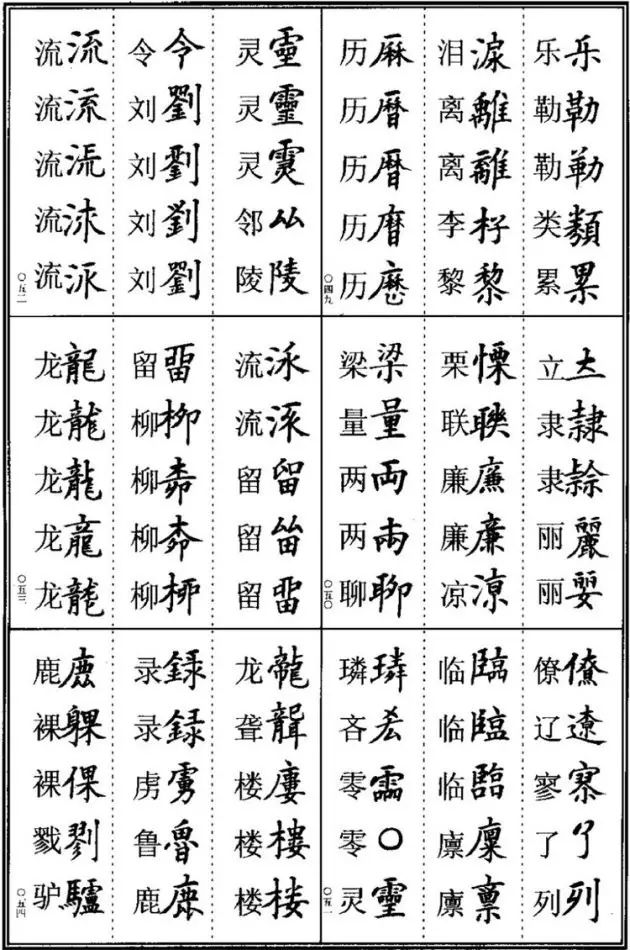 乐乐 勒勒 勒勒 类類 累累
泪淚 离離 离離 李杍 黎黎
历厤 历曆 历曆 历 历歷
〇四九
立 隶隸 隶 丽麗 丽
栗慄 联聨 廉廉 廉廉 凉凉
梁梁 量量 两両 两两 聊聊
〇五〇
僚僚 辽遼 寥 了了 列列
临臨 临臨 临臨 廪廩 廪稟
璘璘 吝 零霝 零〇 灵靈
〇五一
灵靈 灵靈 灵 邻厸 陵陵
令令 刘劉 刘劉 刘劉 刘劉
流流 流流 流 流 流
〇五二
流 流 留留 留 留畱
留畱 柳柳 柳 柳 柳桺
龙龍 龙龍 龙龍 龙龍 龙龍
〇五三
龙龍 聋聾 楼廔 楼樓 楼楼
录録 录録 虏虜 鲁魯 鹿鹿
鹿鹿 裸躶 裸倮 戮剹 驴驢
〇五四